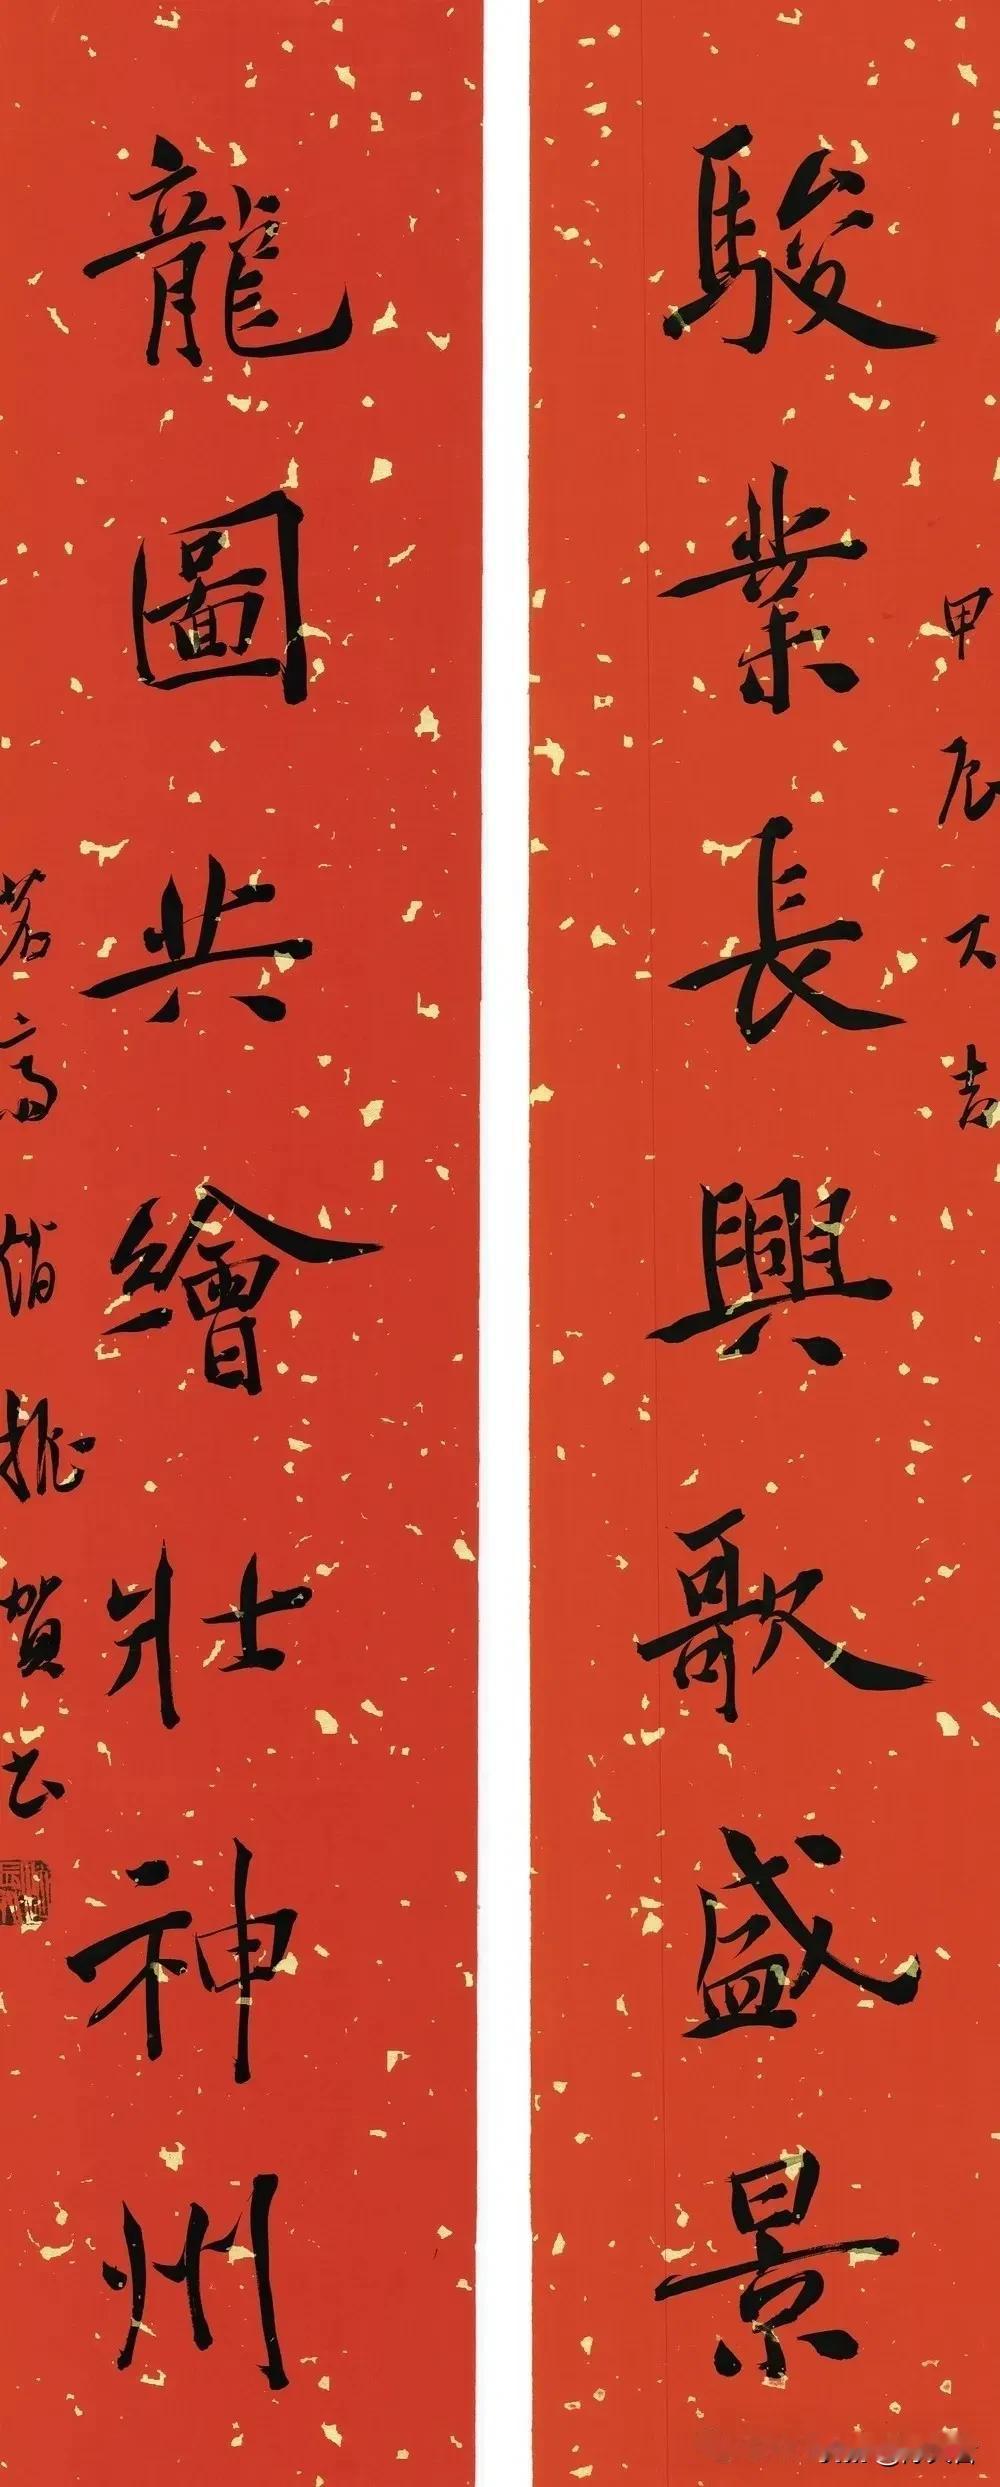 駿業長興歌盛景
甲辰大吉
龍圖共繪壯神州
賀書